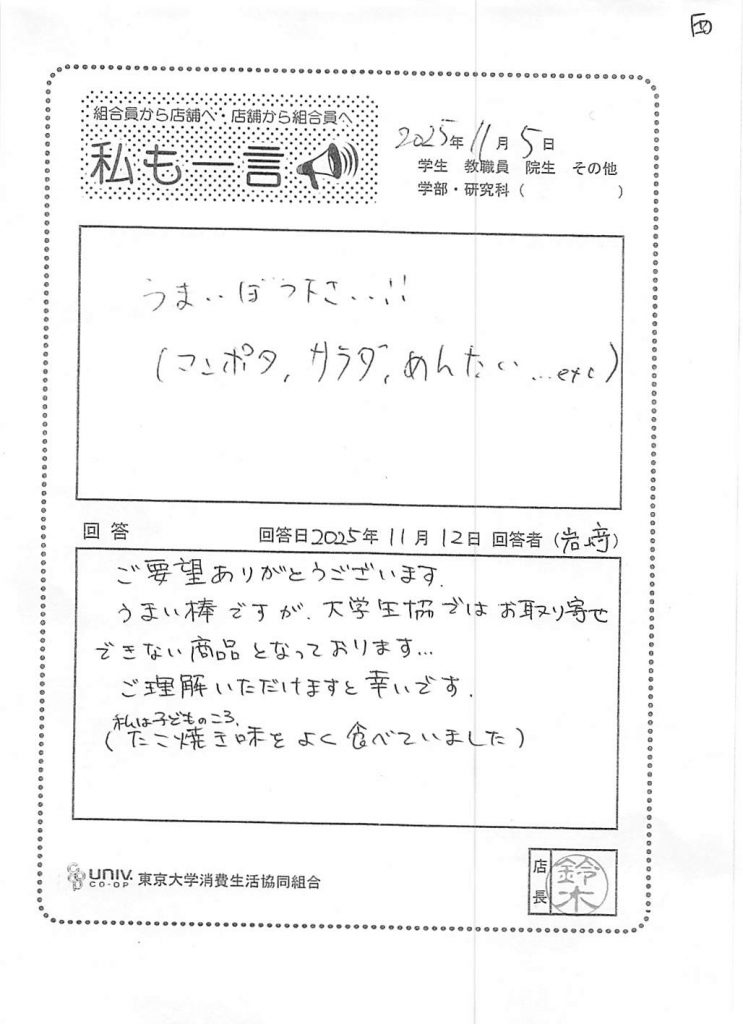 西
組合員から店舗へ・店舗から組合員へ
私も一言
2025年 11月 5日
学生 教職員 院生 その他
学部・研究科（ ）
うまいぼう下さい!!
(コンポタ, サラダ, めんたい ...etc)
回答 回答日2025年11月12日 回答者（岩﨑）
ご要望ありがとうございます.
うまい棒ですが、大学生協ではお取り寄せ
できない商品となっております...
ご理解いただけますと幸いです.
私は子どものころ、
(たこ焼き味をよく食べていました)
UNIV.
CO-OP 東京大学消費生活協同組合
店長 鈴木